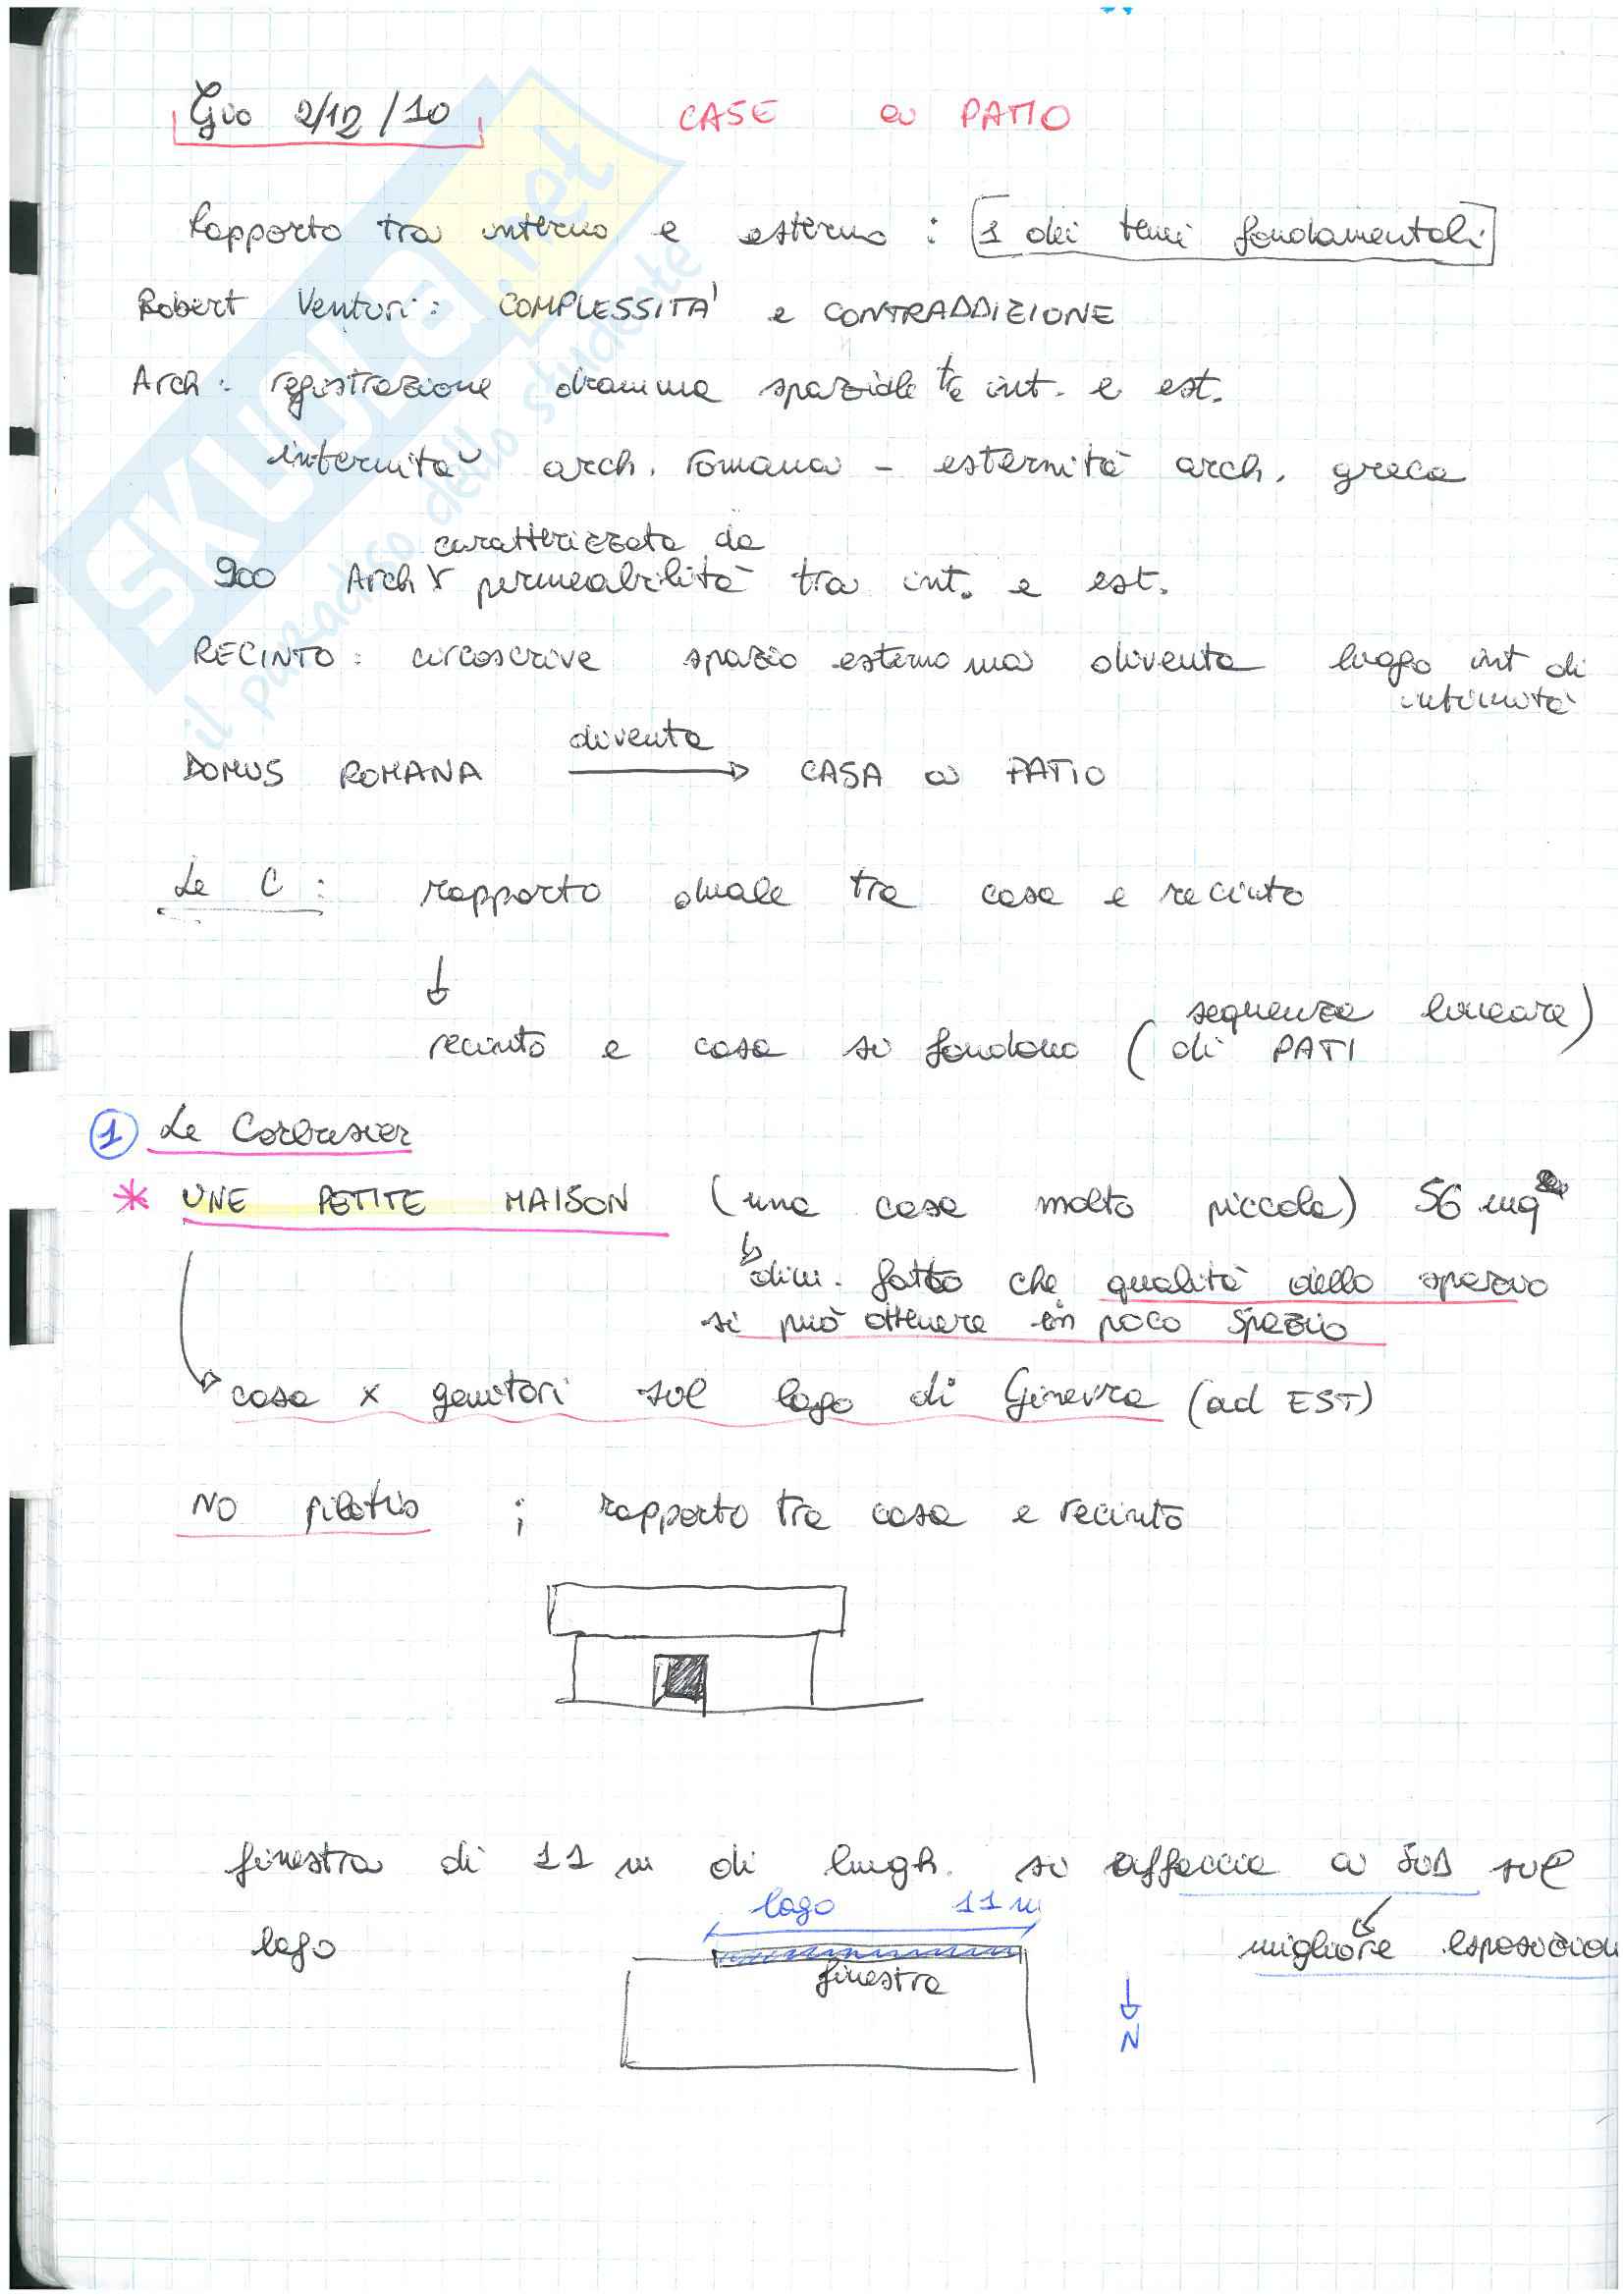 Gio 2/12/10 CASE a PATIO
Rapporto tra interno e esterno : 1 dei temi fondamentali
Robert Venturi : COMPLESSITA' e CONTRADDIZIONE
Arch : registrazione dramma spaziale tra int. e est.
internità arch. romana - esternità arch. greca
caratterizzata da
900 Arch permeabilità tra int. e est.
RECINTO : circoscrive spazio esterno ma diventa luogo int di
intimità
diventa
DOMUS ROMANA → CASA a PATIO
Le C : rapporto duale tra casa e recinto
↓
sequenza lineare)
recinto e casa si fondono ( di PATI
1 Le Corbusier
* UNE PETITE MAISON (una casa molto piccola) 56 mq
dim. fatto che qualità dello spazio
si può ottenere in poco spazio
casa x genitori sul lago di Ginevra (ad EST)
NO pilotis ; rapporto tra casa e recinto
finestra di 11 m di lungh. si affaccia a SUD sul
lago 11 m
lago migliore esposizion
finestra
N
SKUOLA.net
il paradiso dello studente